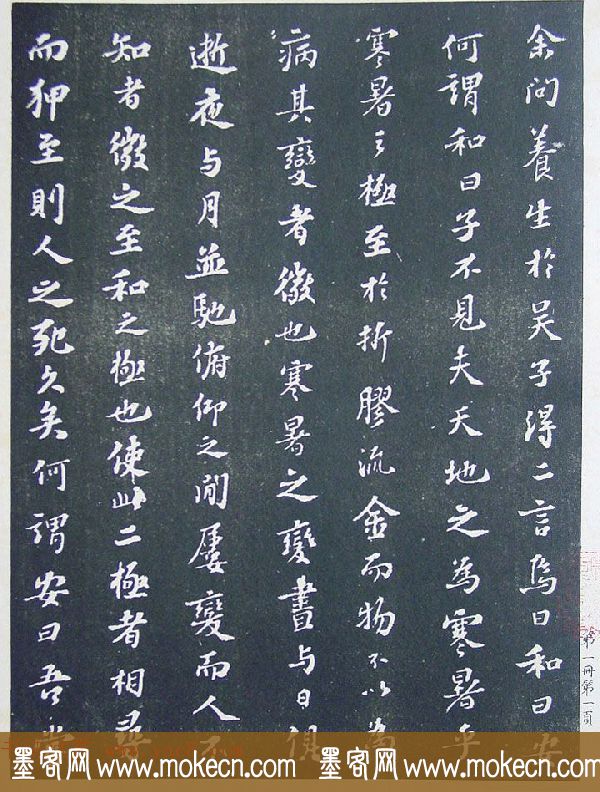 余问養生於吴子得二言焉曰和曰安
何謂和曰子不見夫天地之為寒暑乎
寒暑之極至於折膠流金而物不以為
病其變者微也寒暑之變晝与日俱
逝夜与月並馳俯仰之间屢變而人不
知者微之至和之極也使此二極者相尋
而狎至則人之死久矣何謂安曰吾嘗
第一冊第一頁
墨客网_www.mokecn.com 墨客网_www.mokecn.com